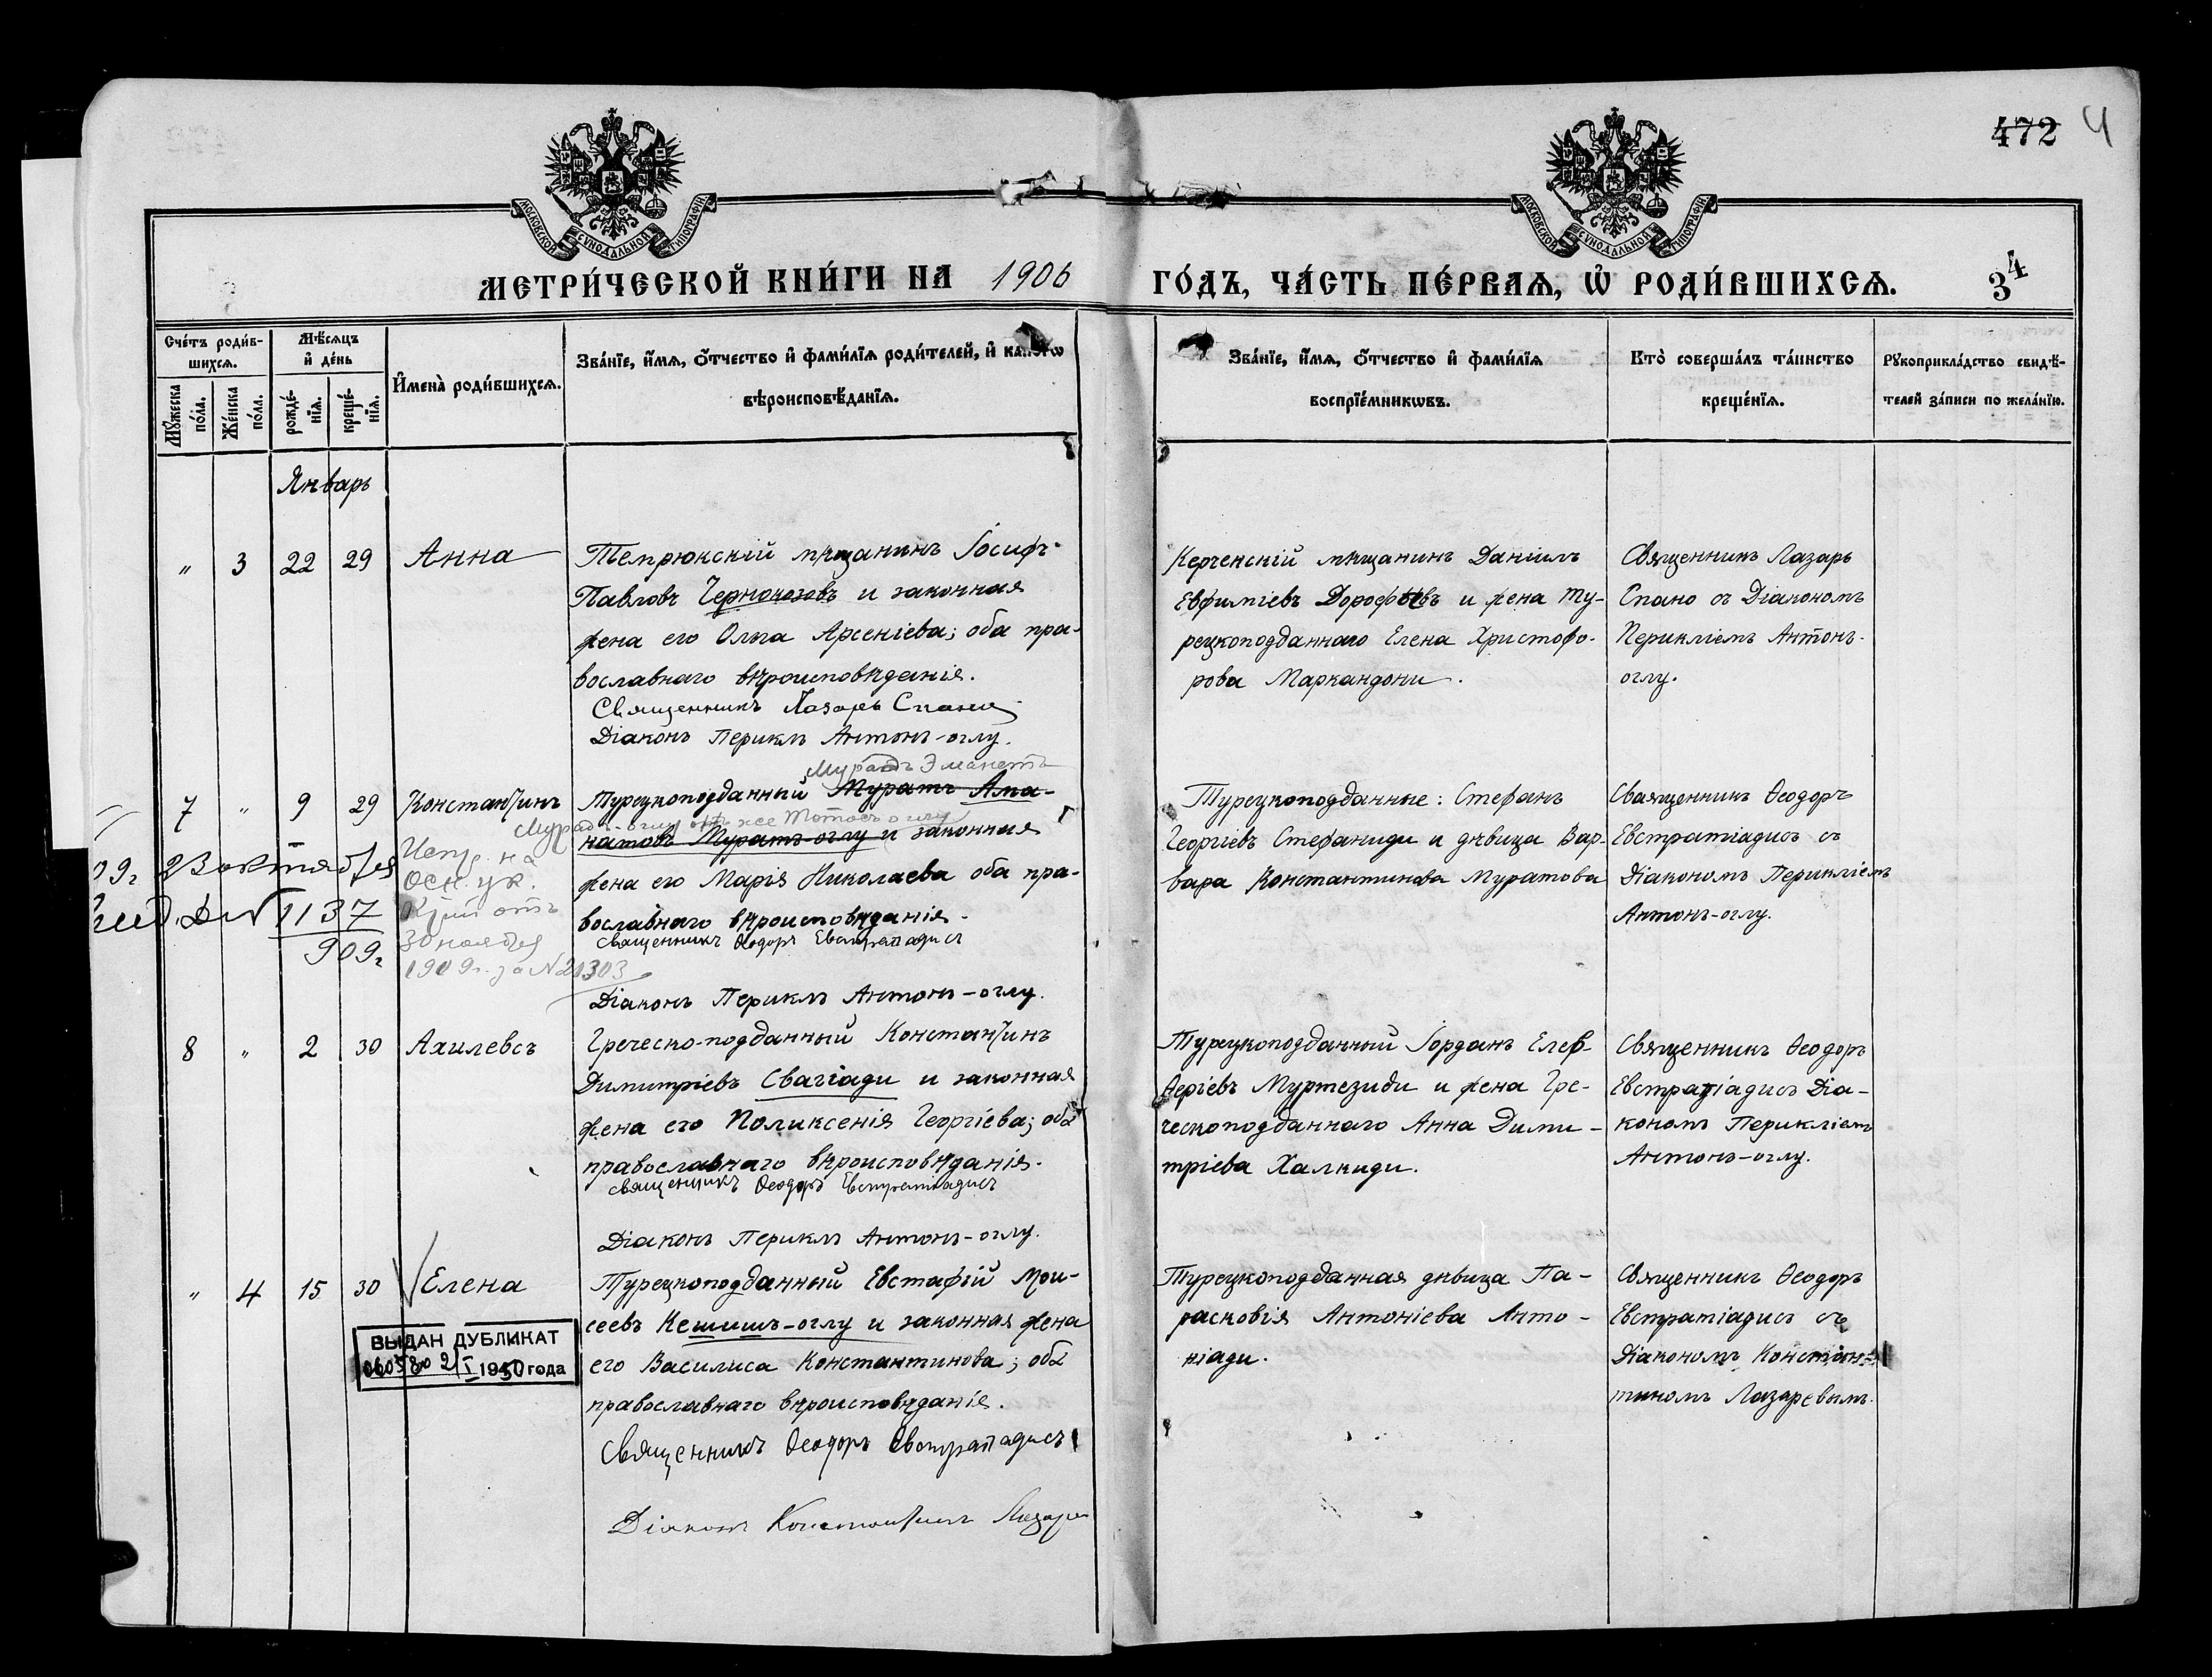 472 4
МОСКОВСКОЙ СѴНОДАЛЬНОЙ ТИПОГРАФІИ
МОСКОВСКОЙ СѴНОДАЛЬНОЙ ТИПОГРАФІИ
МЕТРИ́ЧЕСКОЙ КНИ́ГИ НА 1906 ГО́ДЪ, ЧА́СТЬ ПЕ́РВАѦ, Ѡ҆ РОДИ́ВШИХСѦ. 3 4
Сче́тъ роди́в-
шихсѧ.
Мꙋ́жеска по́ла.
Же́нска по́ла.
Мѣ́сѧцъ
и҆ де́нь
рожде́-
нїѧ.
креще́-
нїѧ.
И҆мена̀ роди́вшихсѧ.
Зва́нїе, и҆́мѧ, ѻ҆́тчество и҆ фами́лїѧ роди́телей, и҆ како́гѡ
вѣроисповѣ́данїѧ.
Зва́нїе, и҆́мѧ, ѻ҆́тчество и҆ фами́лїѧ
воспрїе́мникѡвъ.
Кто̀ соверша́лъ та́инство
креще́нїѧ.
Рꙋкоприкла́дство свидѣ́-
телей за́писи по жела́нїю.
Январь
" 3 22 29 Анна
Темрюкскій мѣщанинъ Іосифъ
Павловъ Чернокозовъ и законная
жена его Ольга Арсеніева; оба пра-
вославнаго вѣроисповѣданія.
Священникъ Лазарь Спано
Діаконъ Периклъ Антонъ-оглу.
Керченскій мѣщанинъ Даніилъ
Евфиміевъ Дорофѣевъ и жена ту-
рецкоподданнаго Елена Христофо-
рова Маркандони.
Священникъ Лазарь
Спано съ Діакономъ
Перикліемъ Антонъ-
оглу.
7 " 9 29 Константинъ
Мурадъ Эманетъ
Турецкоподданный Муратъ Ама-
Мурадъ-оглу онъ же Тотосъ оглу
натовъ Муратъ-оглу и законная
жена его Марія Николаева оба пра-
вославнаго вѣроисповѣданія.
Священникъ Ѳеодоръ Евстратіадисъ
Діаконъ Периклъ Антонъ-оглу.
Испр. на
осн. ук.
от
30 ноября
1909 г. за N 21303
09г. 23 октября
N 1137
909г
Турецкоподданные: Стефанъ
Георгіевъ Стефаниди и дѣвица Вар-
вара Константинова Муратова
Священникъ Ѳеодоръ
Евстратіадисъ съ
Діакономъ Перикліемъ
Антонъ-оглу.
8 " 2 30 Ахилевсъ
Греческо-подданный Константинъ
Димитріевъ Свагіади и законная
жена его Поликсенія Георгіева; оба
православнаго вѣроисповѣданія.
священникъ Ѳеодоръ Евстратіадисъ
Діаконъ Периклъ Антонъ-оглу.
Турецкоподданный Іорданъ Елев-
ѳеріевъ Муртезиди и жена Гре-
ческоподданнаго Анна Дими-
тріева Халкиди.
Священникъ Ѳеодоръ
Евстратіадисъ Діа-
кономъ Перикліемъ
Антонъ-оглу.
" 4 15 30 Елена
Турецкоподданный Евстафій Мои-
сеевъ Кешишъ-оглу и законная жена
его Василиса Константинова; оба
православнаго вѣроисповѣданія.
Священникъ Ѳеодоръ Евстратіадисъ
Діаконъ Константинъ Лазаревъ
ВЫДАН ДУБЛИКАТ
21/I 1950 года
Турецкоподданная дѣвица Па-
расковія Антоніева Анто-
ніади.
Священникъ Ѳеодоръ
Евстратіадисъ съ
Діакономъ Констан-
тиномъ Лазаревымъ.